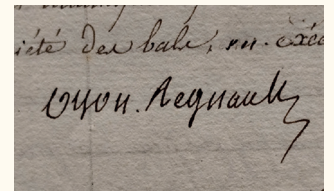 iété des bals, en. exéc
Oyon. Regnault